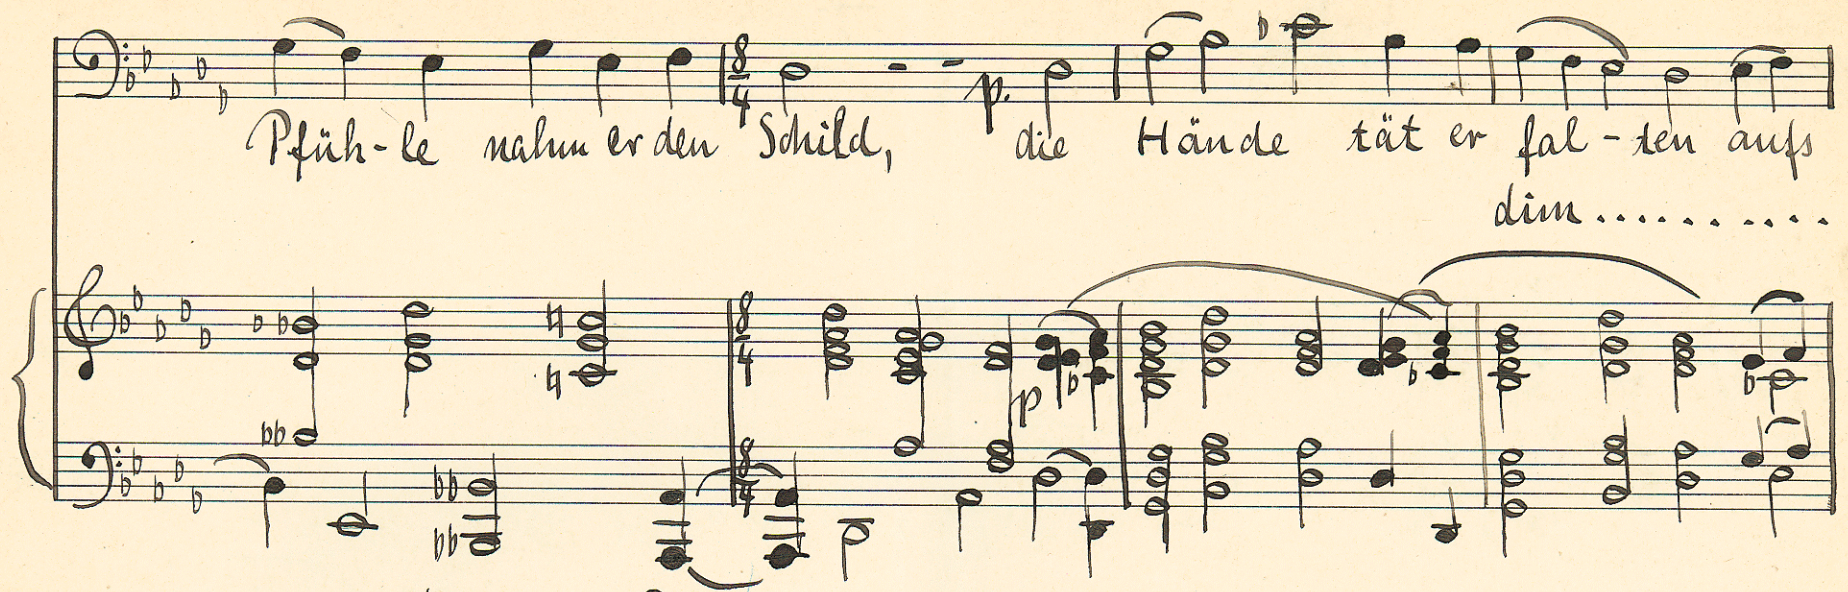 8 4 p.
Pfüh-le nahm er den Schild, die Hände tät er fal-ten aufs
dim..........
8 4
p
8 4